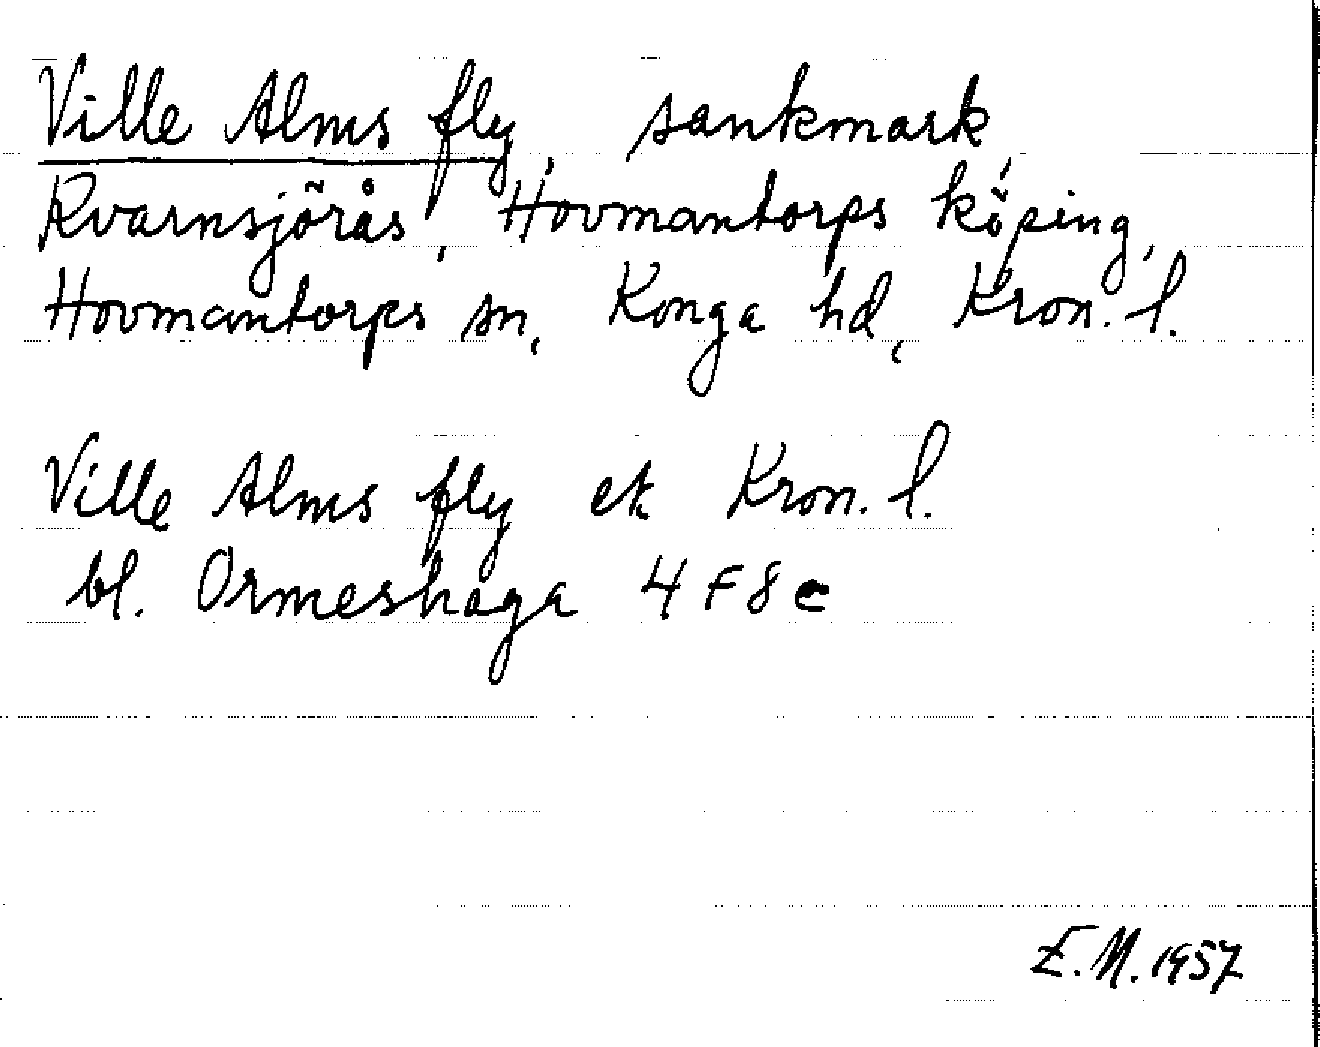 Ville Alms fly, sankmark,
Kvarnsjörås, Hovmantorps köping,
Hovmantorps sn, Konga hd, Kron. l.
Ville Alms fly ek Kron. l.
bl. Ormeshaga 4 F 8 e
E.M. 1957